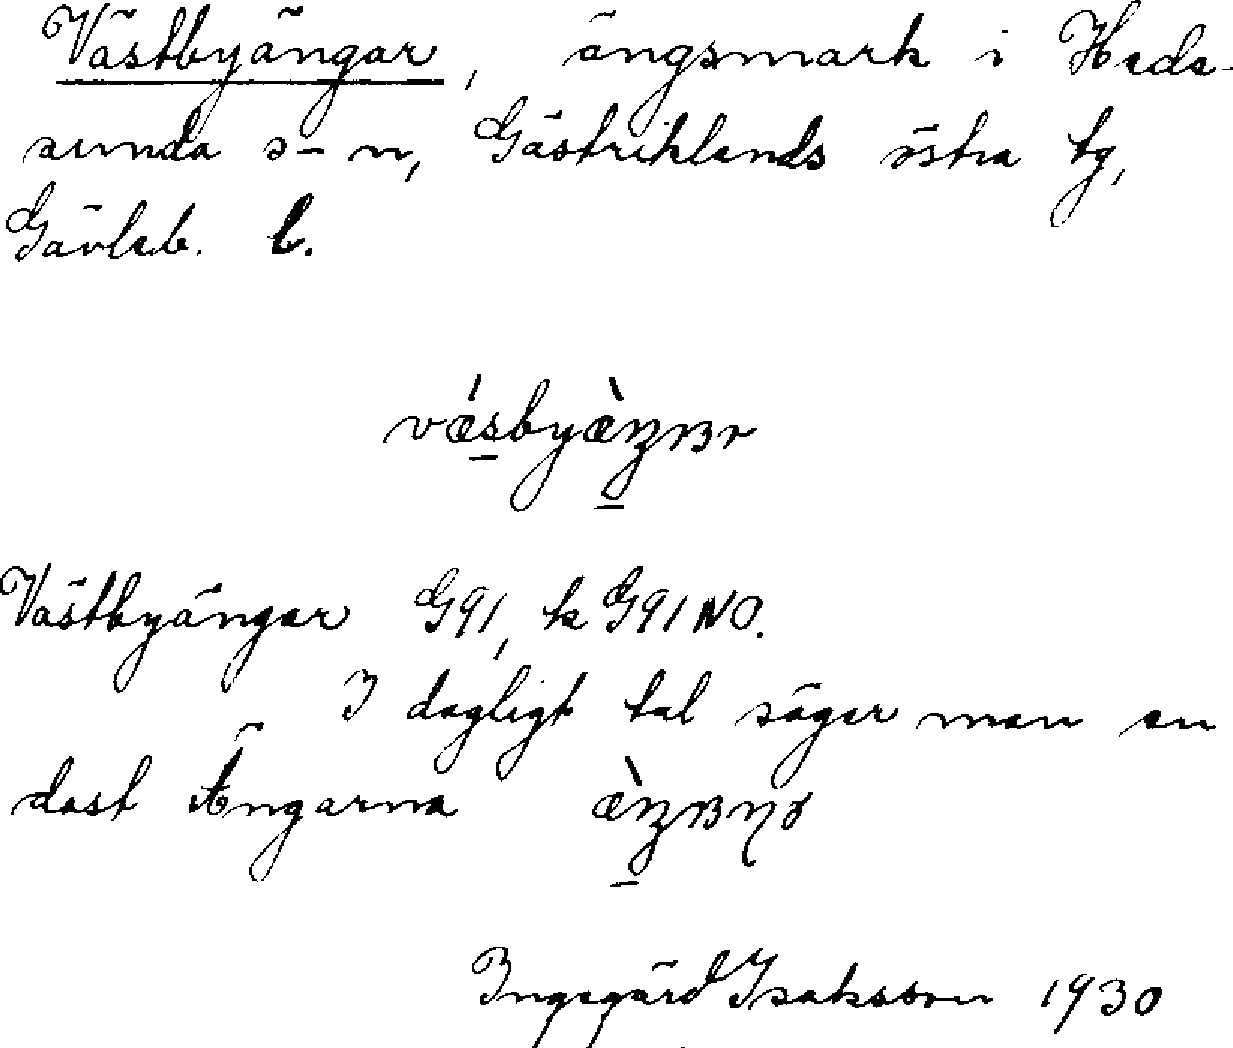 Västbyängar, ängsmark i Hede-
sunda s-n, Gästriklands östra tg,
Gävleb. l.
Västbyängar G91, k G91 NO.
I dagligt tal säger man en
dast Ängarna
Ingegärd Isaksson 1930